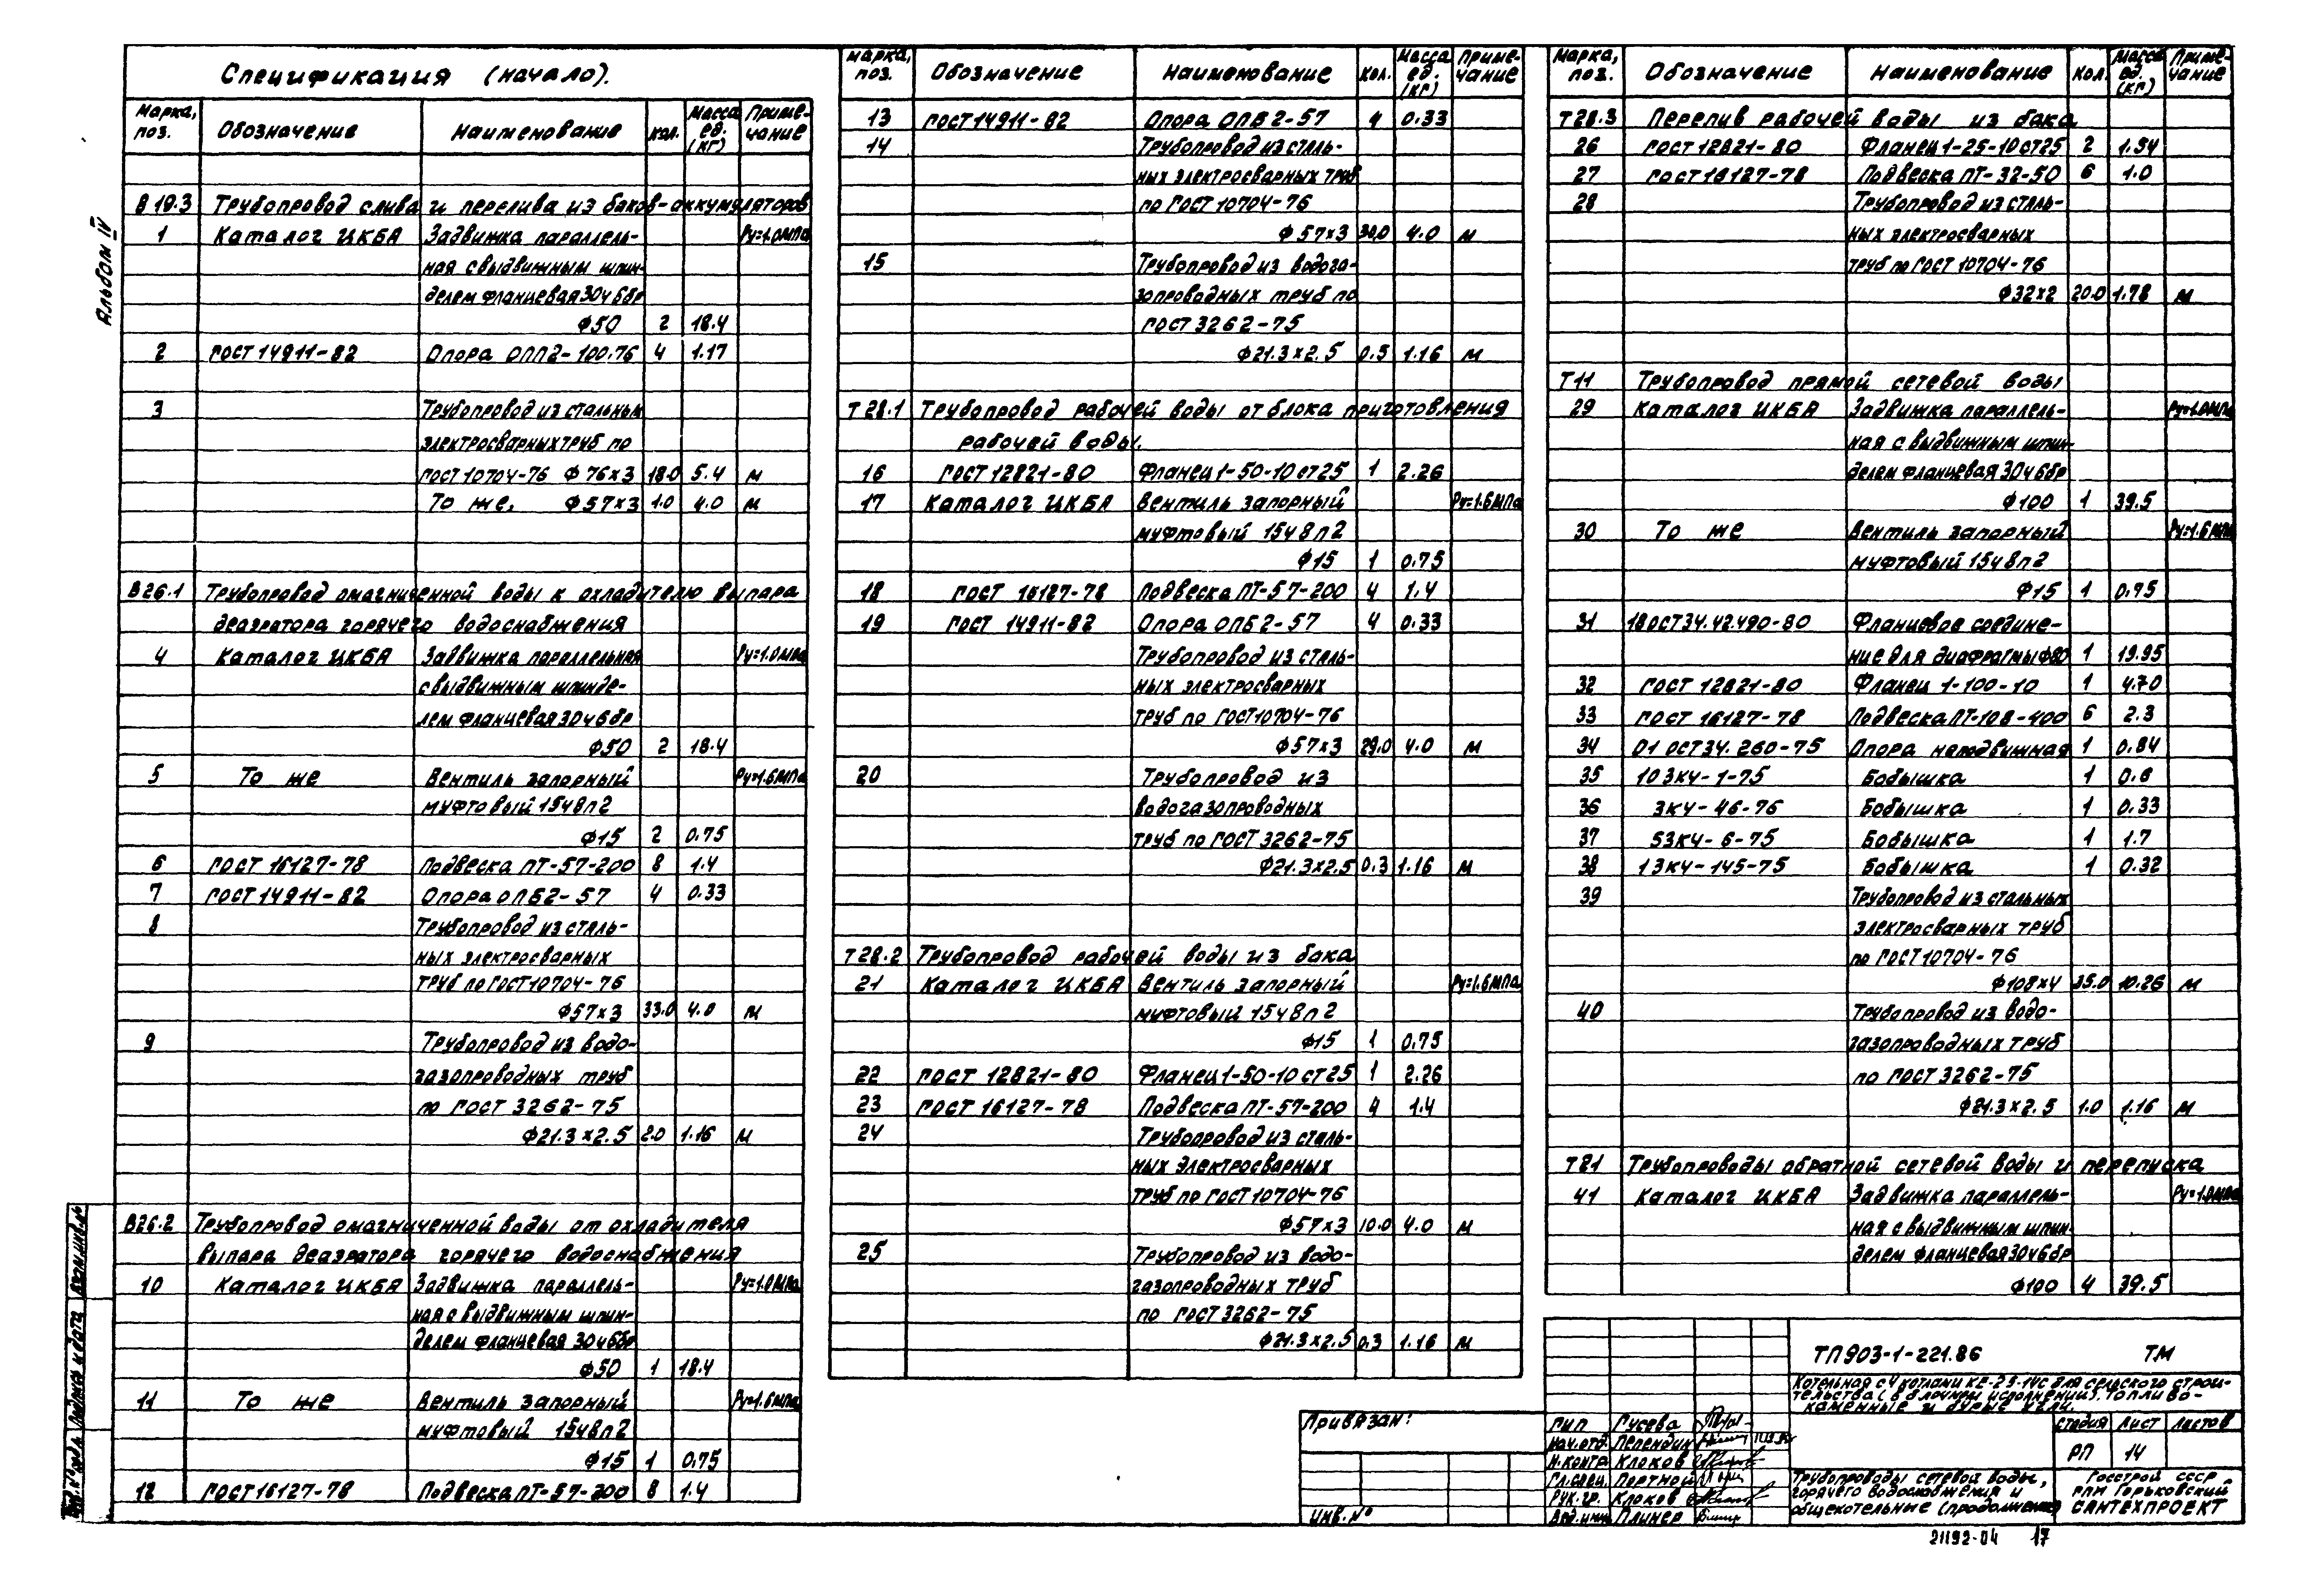 Альбом IV
Спецификация (начало).
Марка, поз. Обозначение Наименование кол. Масса ед. (кг) Приме-чание
В19.3 Трубопровод слива и перелива из баков-аккумуляторов
1 Каталог ЦКБА Задвижка параллель- Ру=1.0МПа
ная с выдвижным шпин-
делем фланцевая 30ч6бр
ф50 2 18.4
2 ГОСТ 14911-82 Опора ОПП2-100.76 4 1.17
3 Трубопровод из стальных
электросварных труб по
ГОСТ 10704-76 ф76х3 18.0 5.4 м
То же, ф57х3 1.0 4.0 м
В26.1 Трубопровод омагниченной воды к охладителю выпара
деаэратора горячего водоснабжения
4 Каталог ЦКБА Задвижка параллельная Ру=1.0МПа
с выдвижным шпинде-
лем фланцевая 30ч6бр
ф50 2 18.4
5 То же Вентиль запорный Ру=1.6МПа
муфтовый 15ч8п2
ф15 2 0.75
6 ГОСТ 16127-78 Подвеска ПТ-57-200 8 1.4
7 ГОСТ 14911-82 Опора ОПБ2-57 4 0.33
8 Трубопровод из сталь-
ных электросварных
труб по ГОСТ 10704-76
ф57х3 33.0 4.0 м
9 Трубопровод из водо-
газопроводных труб
по ГОСТ 3262-75
ф21.3х2.5 2.0 1.16 м
В26.2 Трубопровод омагниченной воды от охладителя
выпара деаэратора горячего водоснабжения
10 Каталог ЦКБА Задвижка параллель- Ру=1.0МПа
ная с выдвижным шпин-
делем фланцевая 30ч6бр
ф50 1 18.4
11 То же Вентиль запорный Ру=1.6МПа
муфтовый 15ч8п2
ф15 1 0.75
12 ГОСТ 16127-78 Подвеска ПТ-57-200 8 1.4
Марка, поз. Обозначение Наименование кол. Масса ед. (кг) Приме-чание
13 ГОСТ 14911-82 Опора ОПБ2-57 4 0.33
14 Трубопровод из сталь-
ных электросварных труб
по ГОСТ 10704-76
ф57х3 30.0 4.0 м
15 Трубопровод из водога-
зопроводных труб по
ГОСТ 3262-75
ф21.3х2.5 0.5 1.16 м
Т28.1 Трубопровод рабочей воды от блока приготовления
рабочей воды.
16 ГОСТ 12821-80 Фланец 1-50-10 ст25 1 2.26
17 Каталог ЦКБА Вентиль запорный Ру=1.6МПа
муфтовый 15ч8п2
ф15 1 0.75
18 ГОСТ 16127-78 Подвеска ПТ-57-200 4 1.4
19 ГОСТ 14911-82 Опора ОПБ2-57 4 0.33
Трубопровод из сталь-
ных электросварных
труб по ГОСТ 10704-76
ф57х3 29.0 4.0 м
20 Трубопровод из
водогазопроводных
труб по ГОСТ 3262-75
ф21.3х2.5 0.3 1.16 м
Т28.2 Трубопровод рабочей воды из бака
21 Каталог ЦКБА Вентиль запорный Ру=1.6МПа
муфтовый 15ч8п2
ф15 1 0.75
22 ГОСТ 12821-80 Фланец 1-50-10 ст25 1 2.26
23 ГОСТ 16127-78 Подвеска ПТ-57-200 4 1.4
24 Трубопровод из сталь-
ных электросварных
труб по ГОСТ 10704-76
ф57х3 10.0 4.0 м
25 Трубопровод из водо-
газопроводных труб
по ГОСТ 3262-75
ф21.3х2.5 0.3 1.16 м
Марка, поз. Обозначение Наименование Кол. Масса ед. (кг) Приме-чание
Т28.3 Перелив рабочей воды из бака
26 ГОСТ 12821-80 Фланец 1-25-10 ст25 2 1.54
27 ГОСТ 16127-78 Подвеска ПТ-32-50 6 1.0
28 Трубопровод из сталь-
ных электросварных
труб по ГОСТ 10704-76
ф32х2 20.0 1.78 м
Т11 Трубопровод прямой сетевой воды
29 Каталог ЦКБА Задвижка параллель- Ру=1.0МПа
ная с выдвижным шпин-
делем фланцевая 30ч6бр
ф100 1 39.5
30 То же Вентиль запорный Ру=1.6МПа
муфтовый 15ч8п2
ф15 1 0.75
31 18ОСТ34.42.490-80 Фланцевое соедине-
ние для диафрагмы ф80 1 19.95
32 ГОСТ 12821-80 Фланец 1-100-10 1 4.70
33 ГОСТ 16127-78 Подвеска ПТ-108-400 6 2.3
34 01 ОСТ34.260-75 Опора неподвижная 1 0.84
35 103К4-1-75 Бобышка 1 0.6
36 3К4-46-76 Бобышка 1 0.33
37 53К4-6-75 Бобышка 1 1.7
38 13К4-145-75 Бобышка 1 0.32
39 Трубопровод из стальных
электросварных труб
по ГОСТ 10704-76
ф108х4 35.0 10.26 м
40 Трубопровод из водо-
газопроводных труб
по ГОСТ 3262-75
ф21.3х2.5 1.0 1.16 м
Т21 Трубопроводы обратной сетевой воды и перепуска
41 Каталог ЦКБА Задвижка параллель- Ру=1.0МПа
ная с выдвижным шпин-
делем фланцевая 30ч6бр
ф100 4 39.5
ТП903-1-221.86 ТМ
Котельная с 4 котлами КЕ-2.5-14С для сельского строи-
тельства (в блочном исполнении). Топливо-
каменные и бурые угли.
Привязан:
Инв.№
ГИП Гусева
Нач.отд. Пепендин
Н.контр Клоков
Гл.спец. Портной
Рук.гр. Клоков
Вед.инж Плинер
стадия лист листов
РП 14
Трубопроводы сетевой воды,
горячего водоснабжения и
общекотельные (продолжение)
Госстрой СССР
ГПИ Горьковский
САНТЕХПРОЕКТ
21192-04 17
Взам.инв.№
Подпись и дата
Инв.№ подл.